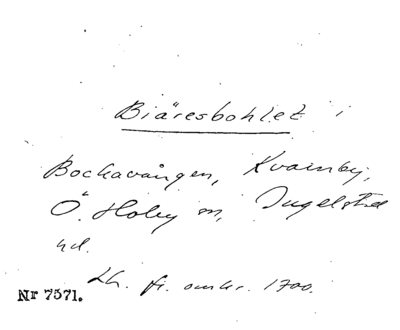 Biäresbohlet i
Bockavången, Kvarnby,
Ö. Hoby sn, Ingelstad
hd.
Lh. fr. omkr. 1700.
Nr 7571.